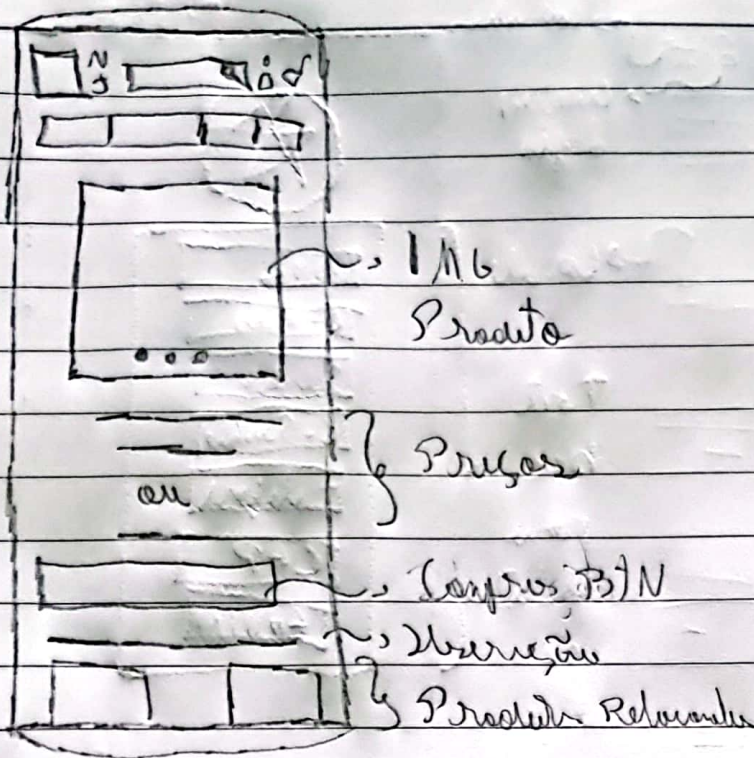 IMG
Produto
Preços
ou
Compras BTN
Descrição
Produtos Relacionados